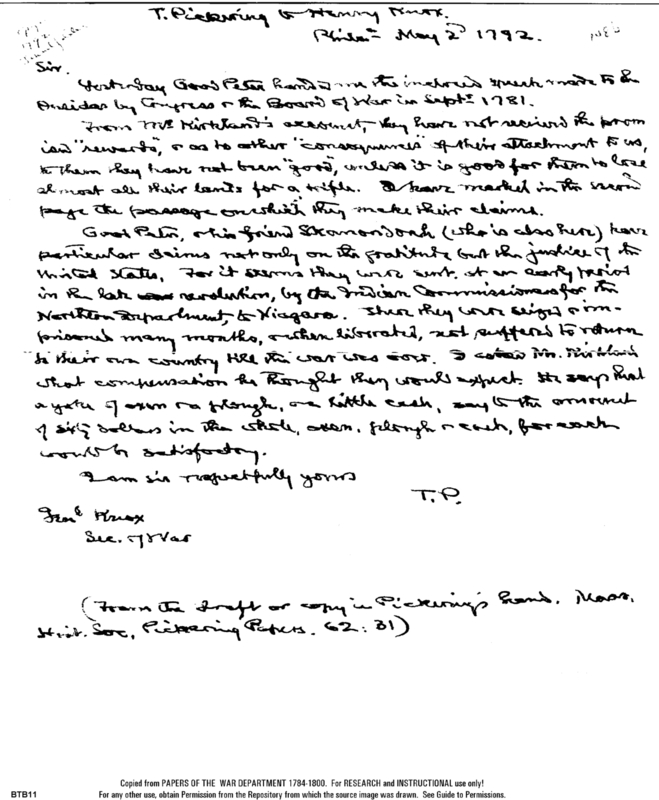 T. Pickering to Henry Knox.
Phila. May 2d 1792.
Sir.
Yesterday Good Peter handed me the inclosed speech made to the
Oneidas by Congress & the Board of War in Septr. 1781.
From Mr. Kirkland's account, they have not received the prom
ised "rewards", & as to other "consequences" of their attachment to us,
to them they have not been "good", unless it is good for them to lose
almost all their lands for a trifle. I have marked in the second
page the passage on which they make their claims.
Good Peter, & his friend Skanondoah (who is also here) have
particular claims not only on the gratitude but the justice of the
United States. For it seems they were sent, at an early period
in the late revolution, by the Indian Commissioners for the
Northern Department, to Niagara. There they were seized & im-
prisoned many months, & when liberated, not suffered to return
to their own country till the war was over. I asked Mr. Kirkland
what compensation he thought they would expect. He says that
a yoke of oxen & a plough, & a little cash, say to the amount
of sixty dollars in the whole, oxen, plough & cash, for each
would be satisfactory.
I am sir respectfully yours
T. P.
Genl Knox
Sec. of War
(From the draft or copy in Pickering's hand. Mass.
Hist. Soc., Pickering Papers. 62: 31)
Copied from PAPERS OF THE WAR DEPARTMENT 1784-1800. For RESEARCH and INSTRUCTIONAL use only!
BTB11 For any other use, obtain Permission from the Repository from which the source image was drawn. See Guide to Permissions.